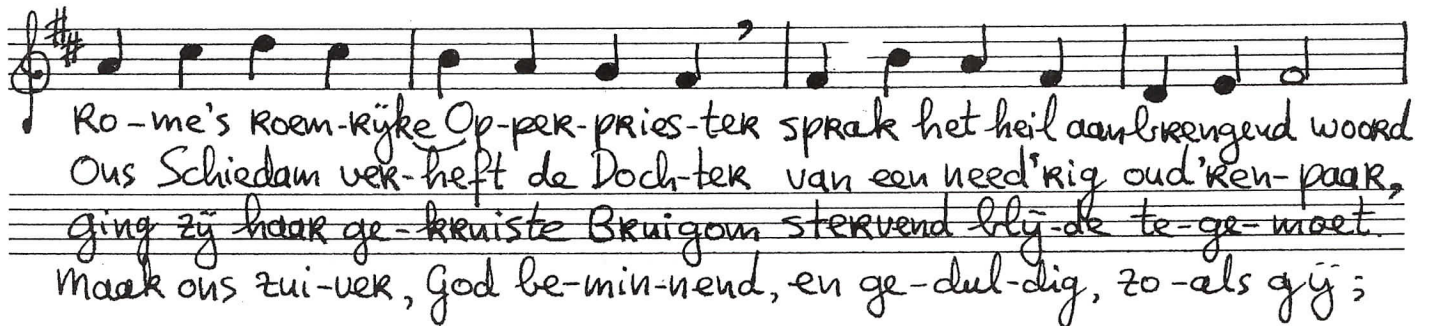 Ro-me's Roem-rijke Op-per-pries-ter sprak het heil aanbrengend woord
Ons Schiedam ver-heft de Doch-ter van een need'rig oud'ren-paar,
ging zij haar ge-kruiste Bruigom stervend blij-de te-ge-moet.
Maak ons zui-ver, God be-min-nend, en ge-dul-dig, zo-als gij;